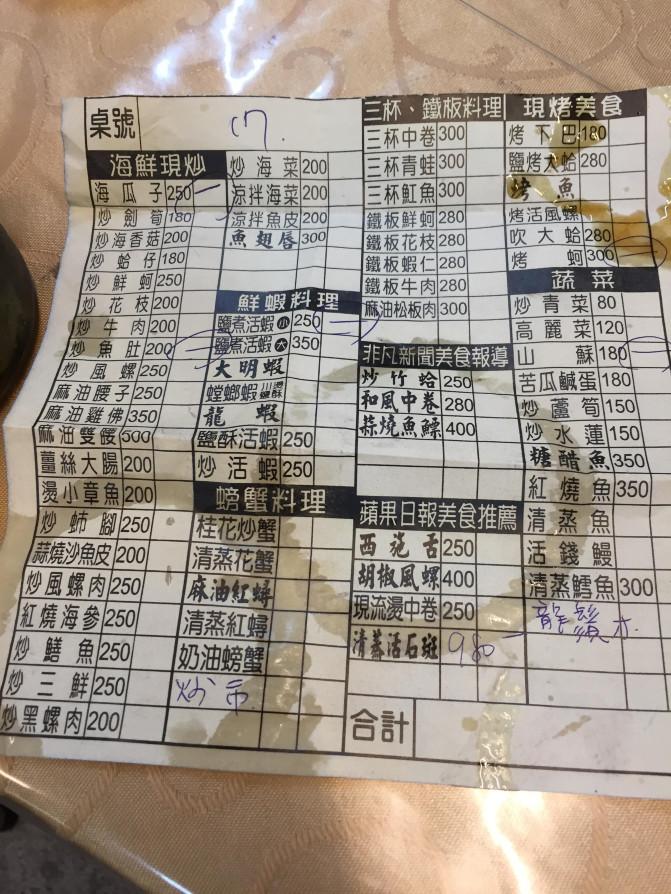 桌號 17.
海鮮現炒
海瓜子 250 一
炒劍筍 180
炒海香菇 200
炒蛤仔 180
炒鮮蚵 250
炒花枝 200
炒牛肉 200
炒魚肚 200
炒風螺 250
麻油腰子 250
麻油雞佛 350
麻油雙餒 300
薑絲大腸 200
燙小章魚 200
炒蚵腳 250
蒜燒沙魚皮 200
炒風螺肉 250
紅燒海參 250
炒鱔魚 250
炒三鮮 250
炒黑螺肉 200
炒海菜 200
涼拌海菜 200
涼拌魚皮 200
魚翅唇 300
鮮蝦料理
鹽煮活蝦 小 250
鹽煮活蝦 大 350
大明蝦
螳螂蝦
龍蝦
鹽酥活蝦 250
炒活蝦 250
螃蟹料理
桂花炒蟹
清蒸花蟹
麻油紅蟳
清蒸紅蟳
奶油螃蟹
三杯、鐵板料理
三杯中卷 300
三杯青蛙 300
三杯魟魚 300
鐵板鮮蚵 280
鐵板花枝 280
鐵板蝦仁 280
鐵板牛肉 280
麻油松板肉 300
非凡新聞美食報導
炒竹蛤 250
和風中卷 280
蒜燒魚鰾 400
蘋果日報美食推薦
西施舌 250
胡椒風螺 400
現流燙中卷 250
清蒸活石斑 980
合計
現烤美食
烤下巴 180
鹽烤大蛤 280
烤魚
烤活風螺
吹大蛤 280
烤蚵 300
蔬菜
炒青菜 80
高麗菜 120
山蘇 180
苦瓜鹹蛋 180
炒蘆筍 150
炒水蓮 150
糖醋魚 350
紅燒魚 350
清蒸魚
活錢鰻
清蒸鱈魚 300
龍鬚